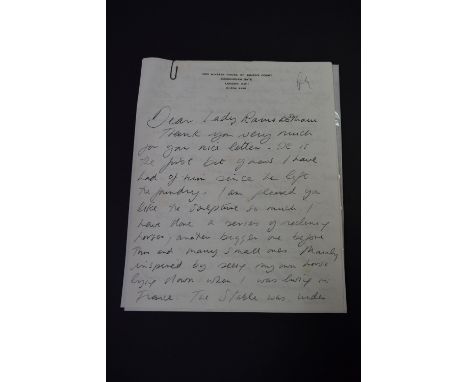 Dear Lady
Thank you very much
for your nice letter. It is
the first bit of news I have
had of him since he left
the foundry. I am pleased you
like the sculpture so much. I
have done a series of reclining
horses, another bigger one before
him and many small ones. Mainly
inspired by seeing my own horse
lying down when I was living in
France. The Stable was under